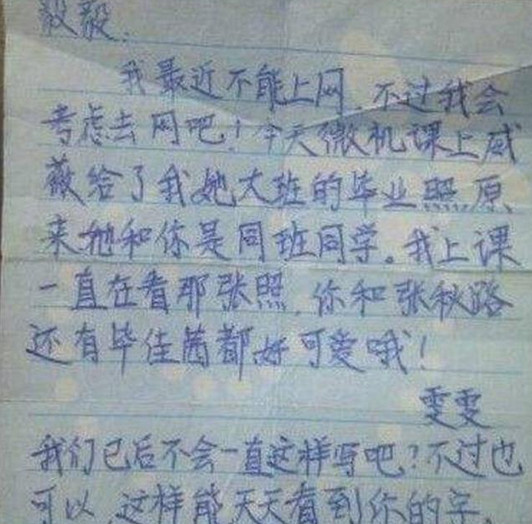 毅毅：
我最近不能上网，不过我会
考虑去网吧！今天微机课上威
薇给了我她大班的毕业照，原
来她和你是同班同学。我上课
一直在看那张照，你和张秋路
还有毕佳茜都好可爱哦！
雯雯
我们已后不会一直这样写吧？不过也
可以，这样能天天看到你的字，